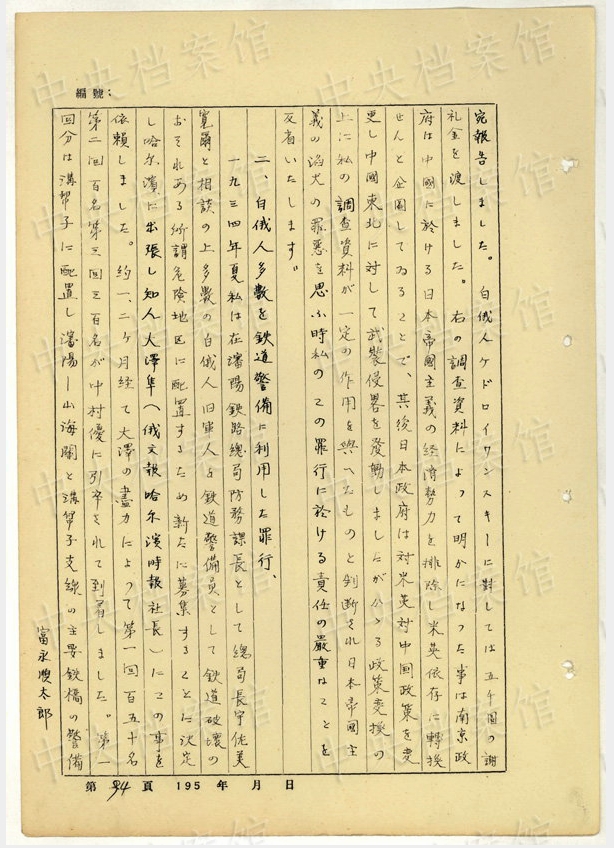 編號：
宛報告しました。白俄人ケドロイワンスキーに対しては五千圓の謝
礼金を渡しました。右の調査資料によって明かになった事は南京政
府は中國に於ける日本帝國主義の経済勢力を排除し米英依存に轉換
せんと企圖してゐることで、其後日本政府は対米英対中國政策を変
更し中國東北に対して武装侵畧を発動しましたがかゝる政策変換の
上に私の調査資料が一定の作用を與へたものと判断され日本帝國主
義の滔天の罪悪を思ふ時私のこの罪行に於ける責任の嚴重なことを
反省いたします。
二、白俄人多数を鉄道警備に利用した罪行、
一九三四年夏私は在瀋陽鉄路總局防務課長として總局長宇佐美
寛爾と相談の上多数の白俄人旧軍人を鉄道警備員として鉄道破壊の
おそれある所謂危険地区に配置するため新たに募集することに決定
し哈尔濱に出張し知人大澤隼（俄文報哈尔濱時報社長）にこの事を
依頼しました。約一、二ケ月経て大澤の盡力によって第一回百五十名
第二回百名第三回三百名が中村優に引率されて到着しました。第一
回分は溝幇子に配置し瀋陽—山海関と溝幇子支線の主要鉄橋の警備
富永順太郎
第 94 頁 195 年 月 日
中央档案馆
中央档案馆
中央档案馆
中央档案馆